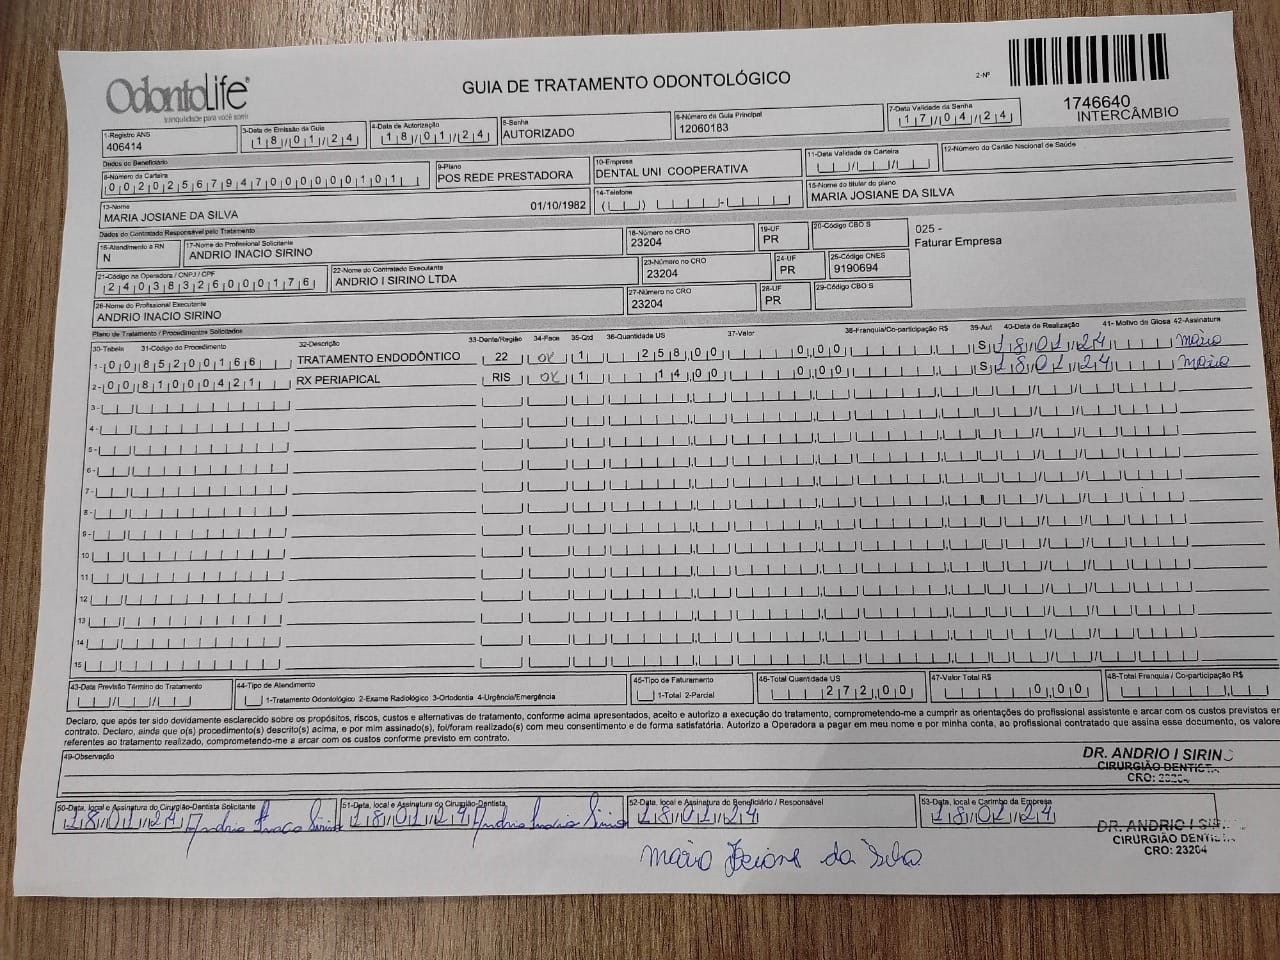 OdontoLife®
tranquilidade para você sorrir
GUIA DE TRATAMENTO ODONTOLÓGICO
2-Nº
1746640
INTERCÂMBIO
1-Registro ANS
406414
3-Data de Emissão da Guia
18/01/24
4-Data de Autorização
18/01/24
5-Senha
AUTORIZADO
6-Número da Guia Principal
12060183
7-Data Validade da Senha
17/04/24
Dados do Beneficiário
8-Número da Carteira
00202567947000000101
9-Plano
POS REDE PRESTADORA
10-Empresa
DENTAL UNI COOPERATIVA
11-Data Validade da Carteira
12-Número do Cartão Nacional de Saúde
13-Nome
MARIA JOSIANE DA SILVA 01/10/1982
14-Telefone
15-Nome do titular do plano
MARIA JOSIANE DA SILVA
Dados do Contratado Responsável pelo Tratamento
16-Atendimento a RN
N
17-Nome do Profissional Solicitante
ANDRIO INACIO SIRINO
18-Número no CRO
23204
19-UF
PR
20-Código CBO S
025 -
Faturar Empresa
21-Código na Operadora / CNPJ / CPF
24038326000176
22-Nome do Contratado Executante
ANDRIO I SIRINO LTDA
23-Número no CRO
23204
24-UF
PR
25-Código CNES
9190694
26-Nome do Profissional Executante
ANDRIO INACIO SIRINO
27-Número no CRO
23204
28-UF
PR
29-Código CBO S
Plano de Tratamento / Procedimentos Solicitados
30-Tabela 31-Código do Procedimento 32-Descrição 33-Dente/Região 34-Face 35-Qtd 36-Quantidade US 37-Valor 38-Franquia/Co-participação R$ 39-Aut 40-Data da Realização 41- Motivo da Glosa 42-Assinatura
1- 00 85200166 TRATAMENTO ENDODÔNTICO 22 OK 1 258,00 0,00 S 18/01/24 Maria
2- 00 81000421 RX PERIAPICAL RIS OK 1 14,00 0,00 S 18/01/24 Maria
3-
4-
5-
6-
7-
8-
9-
10
11
12
13
14
15
43-Data Previsão Término do Tratamento
44-Tipo de Atendimento
1-Tratamento Odontológico 2-Exame Radiológico 3-Ortodontia 4-Urgência/Emergência
45-Tipo de Faturamento
1-Total 2-Parcial
46-Total Quantidade US
272,00
47-Valor Total R$
0,00
48-Total Franquia / Co-participação R$
Declaro, que após ter sido devidamente esclarecido sobre os propósitos, riscos, custos e alternativas de tratamento, conforme acima apresentados, aceito e autorizo a execução do tratamento, comprometendo-me a cumprir as orientações do profissional assistente e arcar com os custos previstos em
contrato. Declaro, ainda que o(s) procedimento(s) descrito(s) acima, e por mim assinado(s), foi/foram realizado(s) com meu consentimento e de forma satisfatória. Autorizo a Operadora a pagar em meu nome e por minha conta, ao profissional contratado que assina esse documento, os valores
referentes ao tratamento realizado, comprometendo-me a arcar com os custos conforme previsto em contrato.
49-Observação
DR. ANDRIO I SIRINO
CIRURGIÃO DENTISTA
CRO: 23204
50-Data, local e Assinatura do Cirurgião-Dentista Solicitante
18/01/24 Andrio Inacio Sirino
51-Data, local e Assinatura do Cirurgião-Dentista
18/01/24 Andrio Inacio Sirino
52-Data, local e Assinatura do Beneficiário / Responsável
18/01/24
Maria Josiane da Silva
53-Data, local e Carimbo da Empresa
18/01/24
DR. ANDRIO I SIRINO
CIRURGIÃO DENTISTA
CRO: 23204